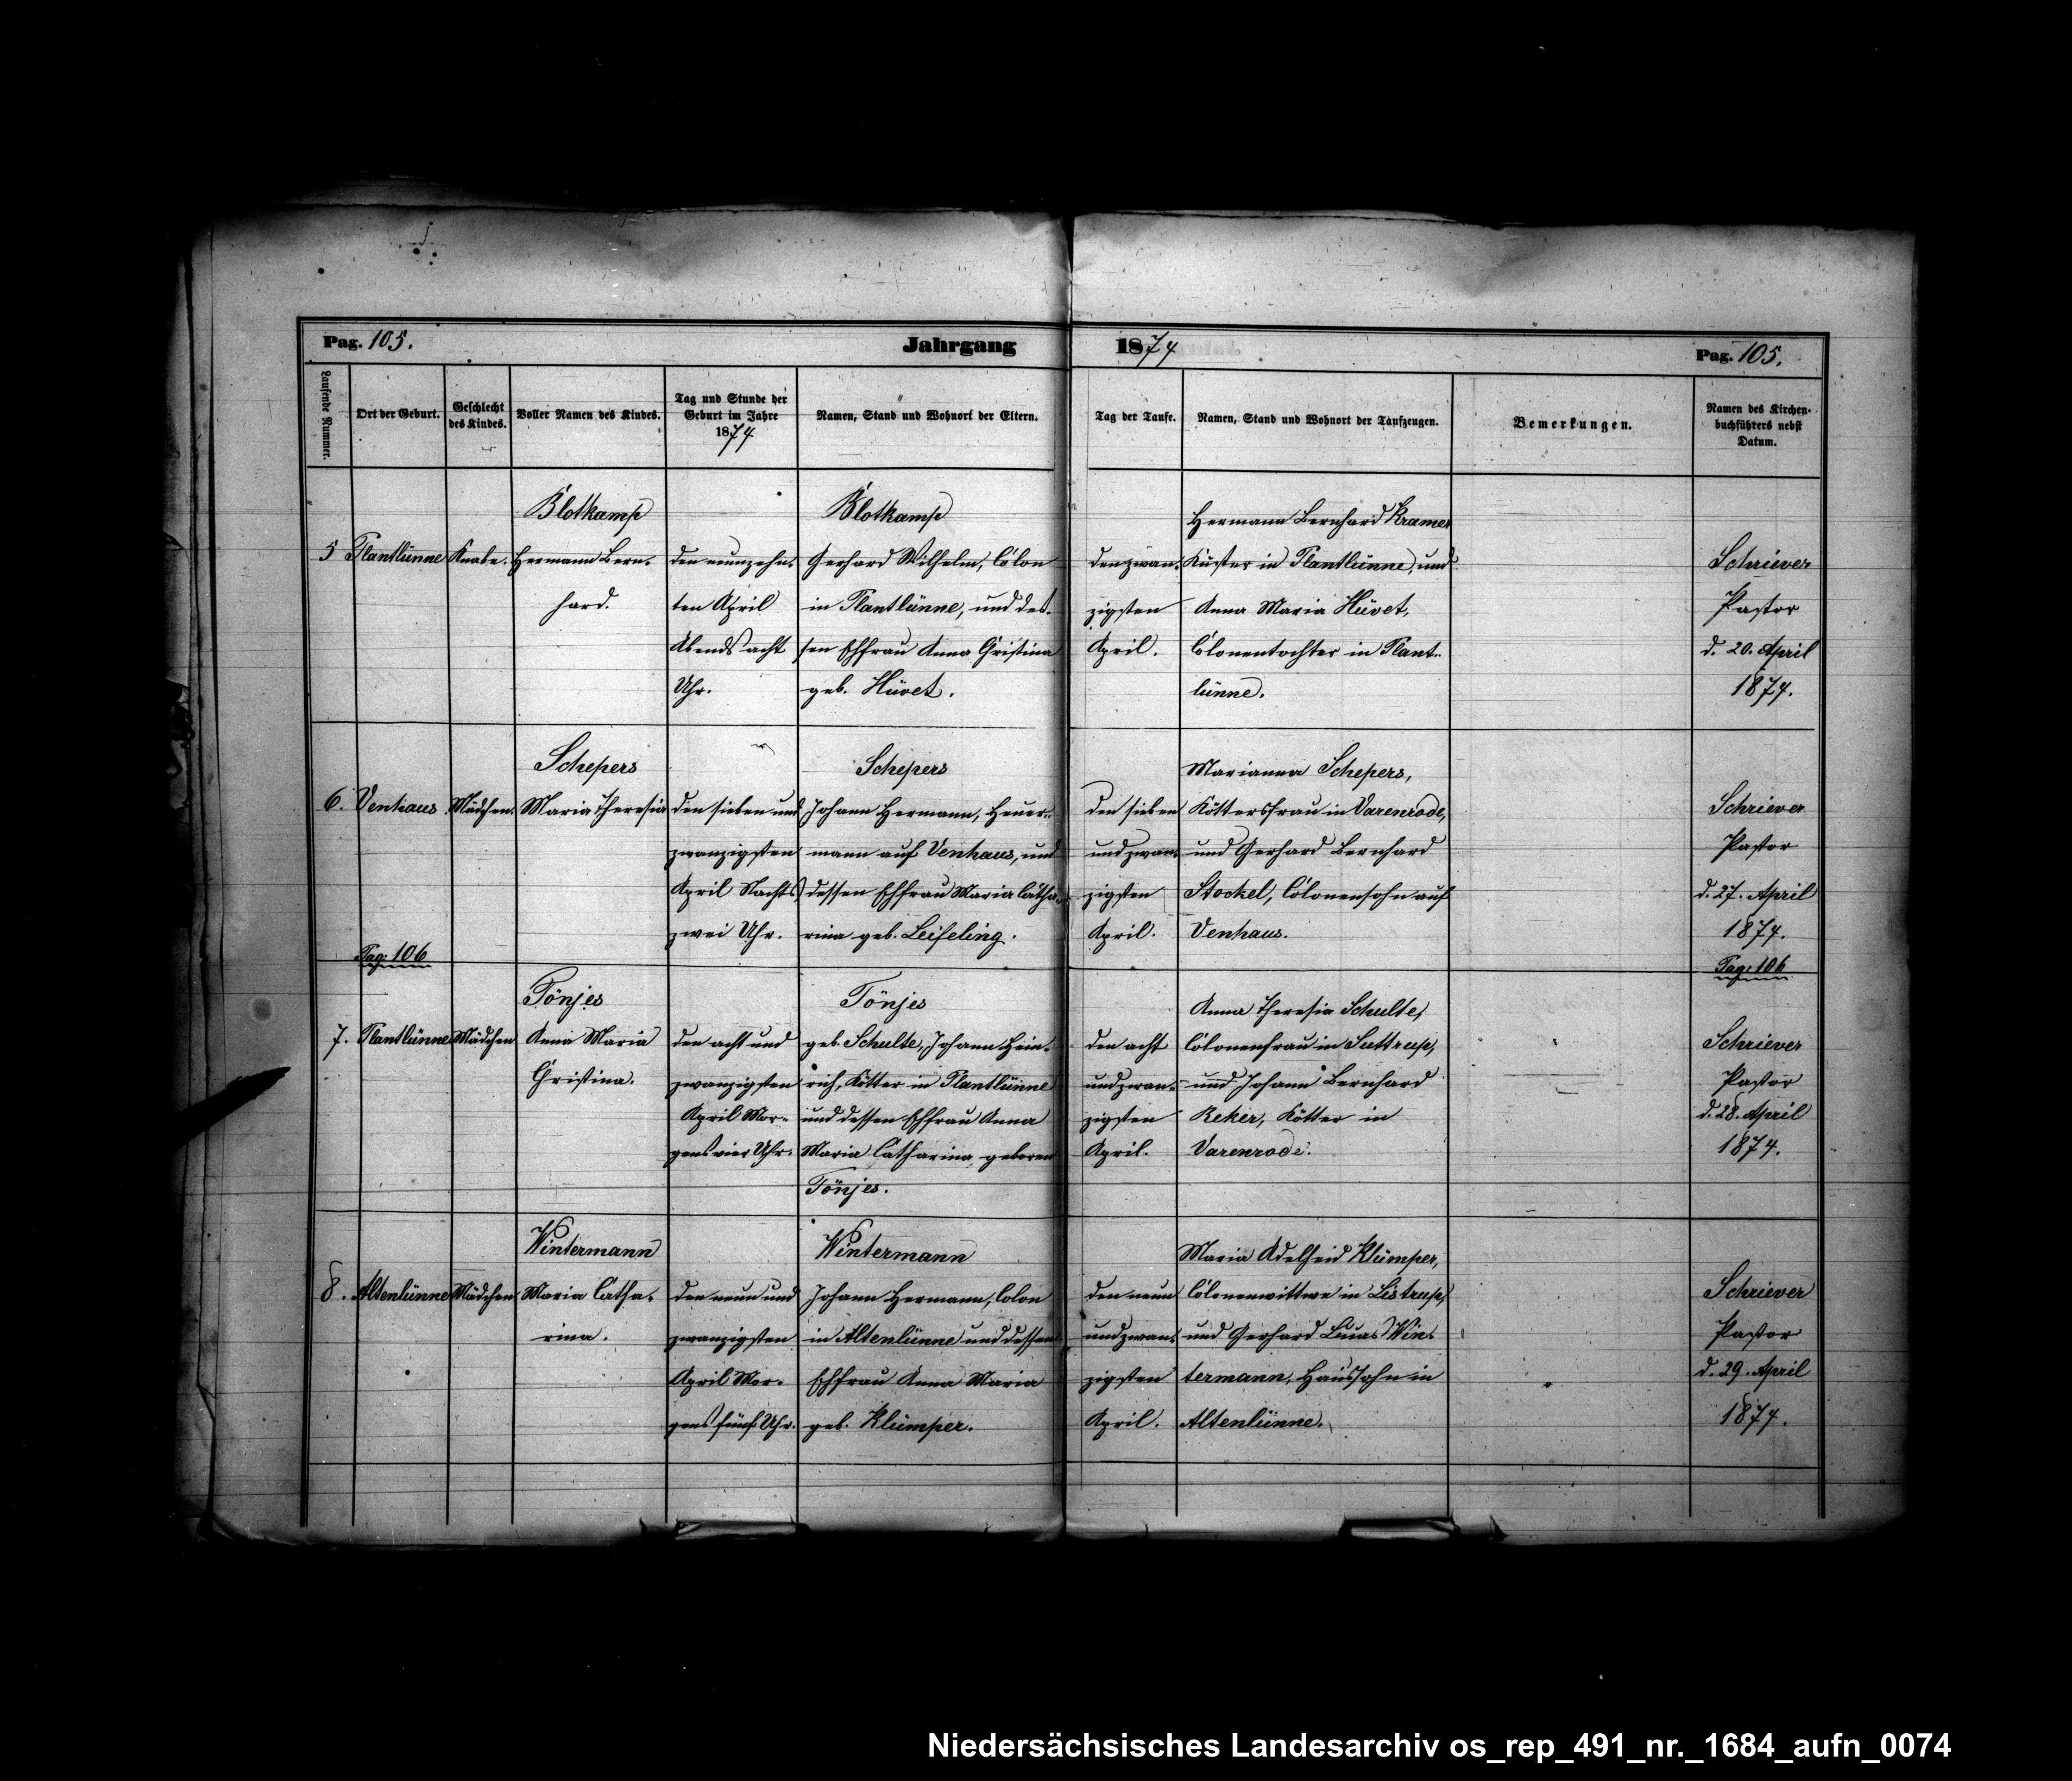 Pag. 105.
Jahrgang 1874
Pag. 105.
Laufende Nummer.
Ort der Geburt.
Geschlecht
des Kindes.
Voller Namen des Kindes.
Tag und Stunde der
Geburt im Jahre
1874
Namen, Stand und Wohnort der Eltern.
Tag der Taufe.
Namen, Stand und Wohnort der Taufzeugen.
Bemerkungen.
Namen des Kirchen-
buchführers nebst
Datum.
5
Plantlünne
Knabe.
Blotkamp
Hermann Bern-
hard.
den neunzehn-
ten April
Abends acht
Uhr.
Blotkamp
Gerhard Wilhelm, Colon
in Plantlünne, und des-
sen Ehfrau Anna Christina
geb. Hüvet.
den zwan-
zigsten
April.
Hermann Bernhard Kramer
Küster in Plantlünne, und
Anna Maria Hüvet,
Colonentochter in Plant-
lünne.
Schriever
Pastor
d. 20. April
1874.
6.
Venhaus
Mädchen.
Schepers
Maria Theresia
den sieben und
zwanzigsten
April Nachts
zwei Uhr.
Schepers
Johann Hermann, Heuer-
mann auf Venhaus, und
dessen Ehfrau Maria Catha-
rina geb. Leifeling.
den sieben
und zwan-
zigsten
April.
Marianna Schepers,
Köttersfrau in Varenrode,
und Gerhard Bernhard
Stockel, Colonensohn auf
Venhaus.
Schriever
Pastor
d. 27. April
1874.
Pag: 106
Pag: 106
7.
Plantlünne
Mädchen
Tönjes
Anna Maria
Christina.
den acht und
zwanzigsten
April Mor-
gens vier Uhr.
Tönjes
geb. Schulte, Johann Hein-
rich, Kötter in Plantlünne
und dessen Ehfrau Anna
Maria Catharina geboren
Tönjes.
den acht
und zwan-
zigsten
April.
Anna Theresia Schulte,
Colonenfrau in Suttrup,
und Johann Bernhard
Reker, Kötter in
Varenrode.
Schriever
Pastor
d. 28. April
1874.
8.
Altenlünne
Mädchen
Wintermann
Maria Catha-
rina.
den neun und
zwanzigsten
April Mor-
gens fünf Uhr.
Wintermann
Johann Hermann, Colon
in Altenlünne und dessen
Ehfrau Anna Maria
geb. Klümper.
den neun
und zwan-
zigsten
April.
Maria Adelheid Klümper,
Colonenwittwe in Listrup,
und Gerhard Lucas Win-
termann, Haussohn in
Altenlünne.
Schriever
Pastor
d. 29. April
1874.
Niedersächsisches Landesarchiv os_rep_491_nr._1684_aufn_0074